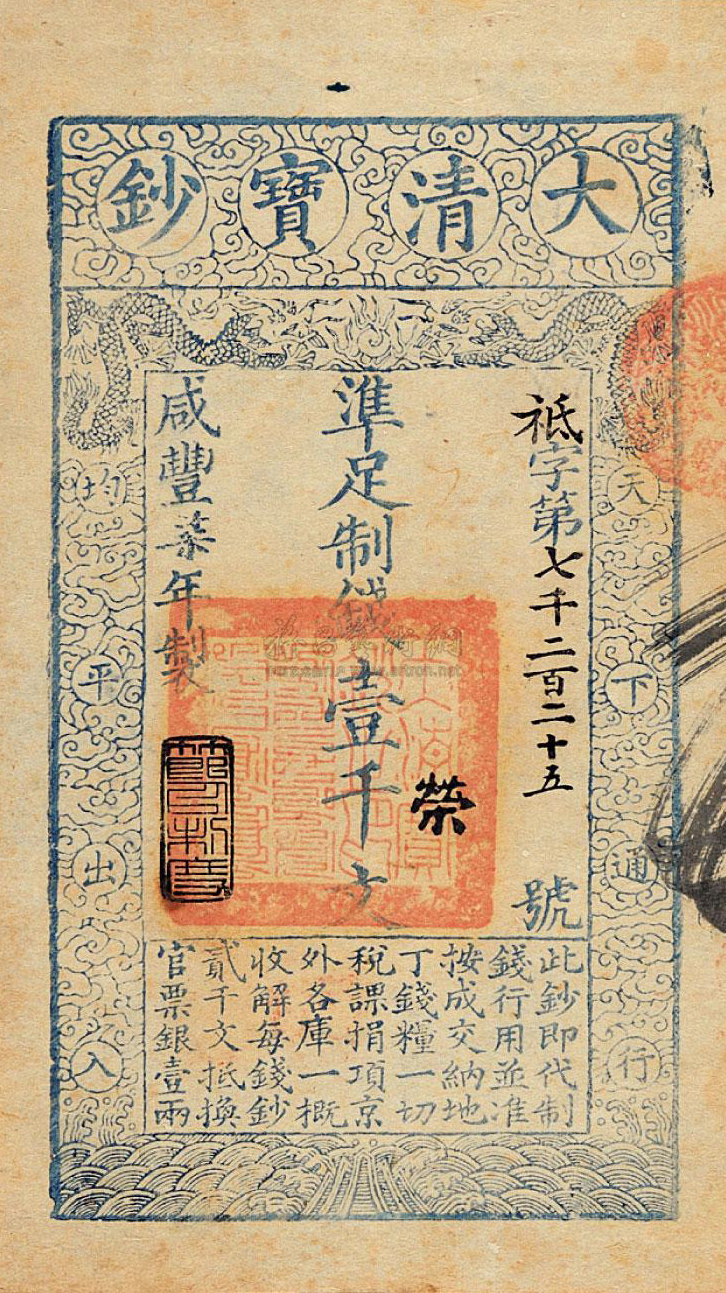 大清寶鈔
天下通行
均平出入
祗字第七千二百二十五號
準足制錢壹千文
榮
咸豐柒年製
此鈔即代制
錢行用並准
按成交納地
丁錢糧一切
稅課捐項京
外各庫一概
收解每錢鈔
貳千文抵換
官票銀壹兩